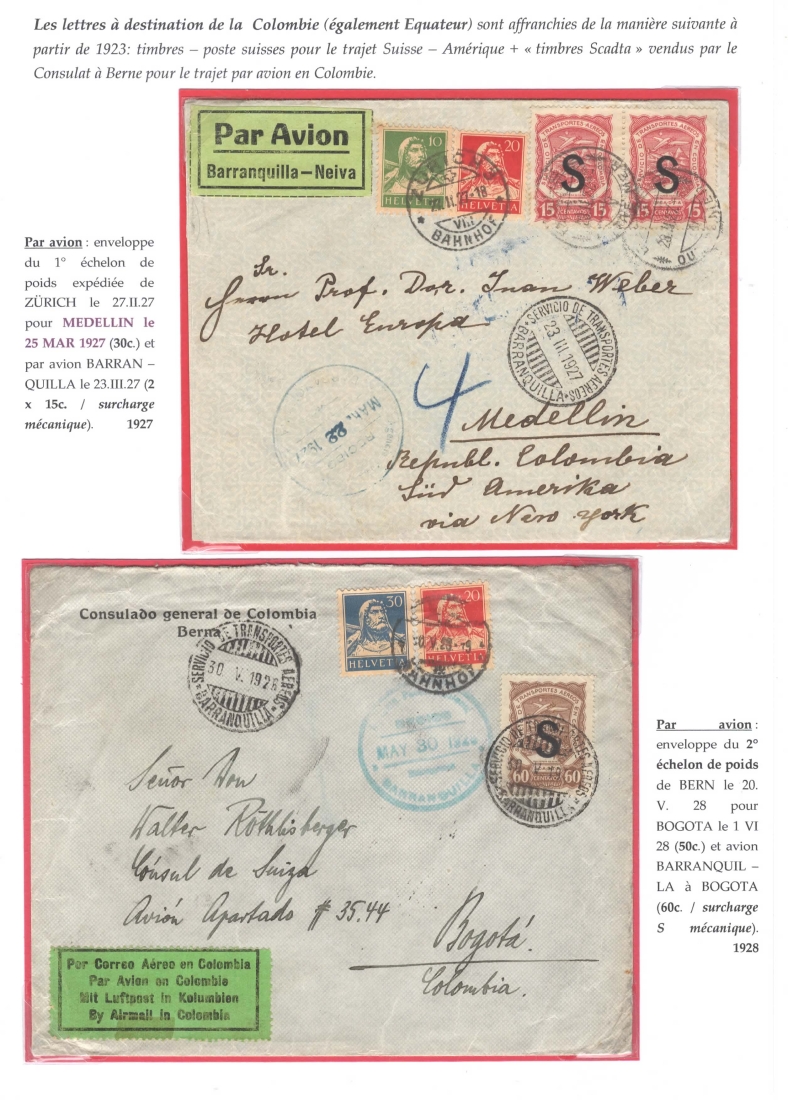 Les lettres à destination de la Colombie (également Equateur) sont affranchies de la manière suivante à
partir de 1923: timbres – poste suisses pour le trajet Suisse – Amérique + « timbres Scadta » vendus par le
Consulat à Berne pour le trajet par avion en Colombie.
Par Avion
Barranquilla—Neiva
10
HELVETIA
20
HELVETIA
TRANSPORTES AEREOS
S
15 CENTAVOS 15
TRANSPORTES AEREOS
S
15 CENTAVOS 15
ZÜRICH
VIII
BAHNHOF
Par avion : enveloppe
du 1° échelon de
poids expédiée de
ZÜRICH le 27.II.27
pour MEDELLIN le
25 MAR 1927 (30c.) et
par avion BARRAN –
QUILLA le 23.III.27 (2
x 15c. / surcharge
mécanique). 1927
Sr.
Herrn Prof. Dor. Juan Weber
Hotel Europa
SERVICIO DE TRANSPORTES AEREOS
23 III 1927
BARRANQUILLA
4
MAR 22 1927
Medellin
Republ. Colombia
Süd Amerika
via New York
Consulado general de Colombia
Berna
SERVICIO DE TRANSPORTES AEREOS
30 V. 1928
BARRANQUILLA
30
HELVETIA
20
HELVETIA
BAHNHOF
MAY 30 1928
BARRANQUILLA
TRANSPORTES AEREOS
S
60 CENTAVOS 60
SERVICIO DE TRANSPORTES AEREOS
BARRANQUILLA
Par avion :
enveloppe du 2°
échelon de poids
de BERN le 20.
V. 28 pour
BOGOTA le 1 VI
28 (50c.) et avion
BARRANQUIL –
LA à BOGOTA
(60c. / surcharge
S mécanique).
1928
Señor Don
Walter Röthlisberger
Cónsul de Suiza
Avión Apartado # 35.44
Bogotá.
Colombia.
Por Correo Aéreo en Colombia
Par Avion en Colombie
Mit Luftpost in Kolumbien
By Airmail in Colombia